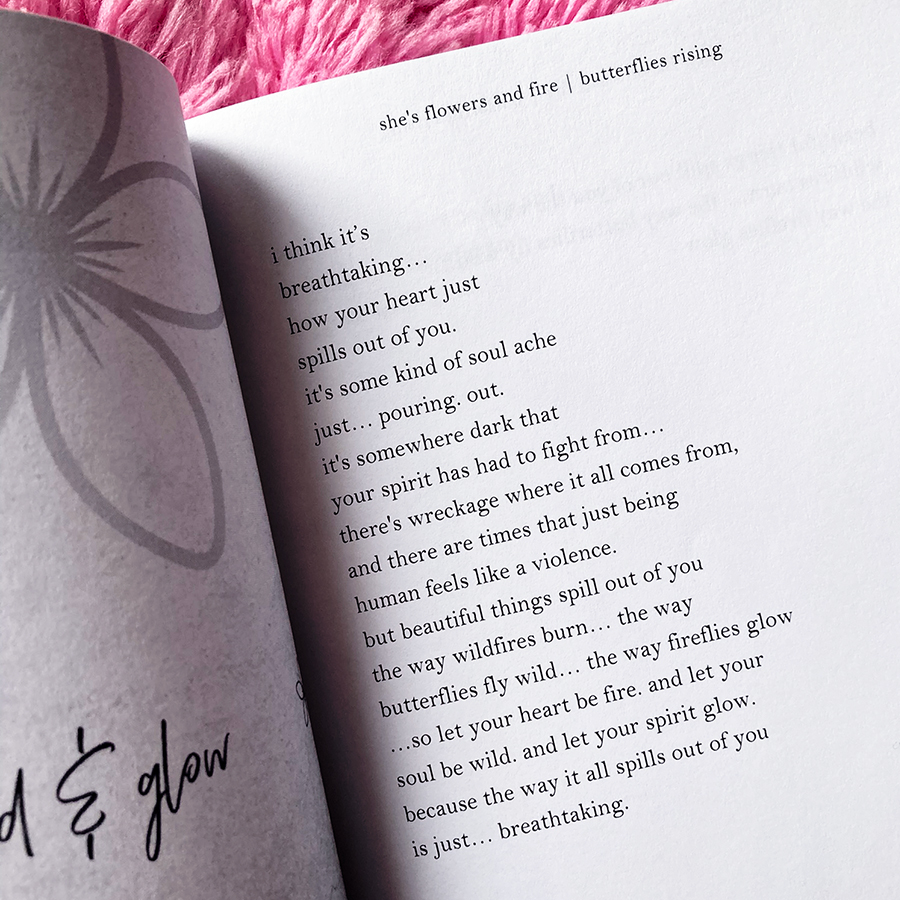 she's flowers and fire | butterflies rising
i think it’s
breathtaking…
how your heart just
spills out of you.
it's some kind of soul ache
just… pouring. out.
it's somewhere dark that
your spirit has had to fight from…
there's wreckage where it all comes from,
and there are times that just being
human feels like a violence.
but beautiful things spill out of you
the way wildfires burn… the way
butterflies fly wild… the way fireflies glow
…so let your heart be fire. and let your
soul be wild. and let your spirit glow.
because the way it all spills out of you
is just… breathtaking.
& glow